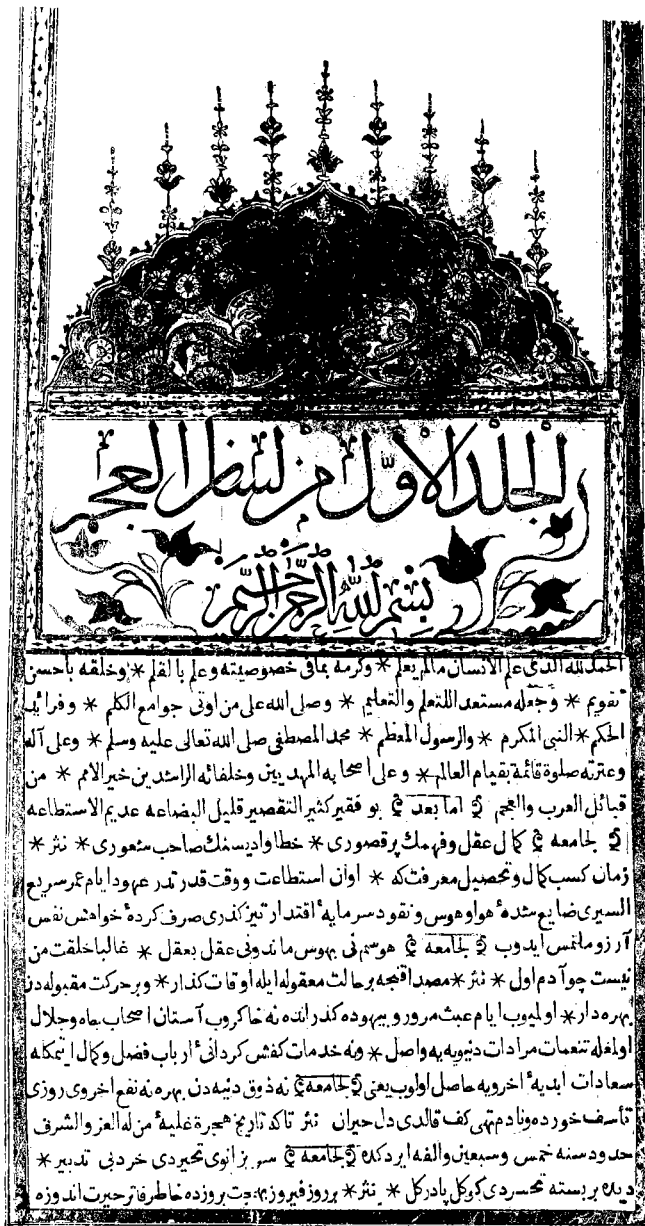 الجلد الاول من لسان العجم
بسم الله الرحمن الرحيم
الحمد لله الذي علم الانسان مالم يعلم * وكرمه بما في خصوصيته وعلم بالقلم * وخلقه باحسن
تقويم * وجعله مستعد اللتعلم والتعليم * وصلى الله على من اوتى جوامع الكلم * وفرائد
الحكم * النبى المكرم * والرسول المعظم * محمد المصطفى صلى الله تعالى عليه وسلم * وعلى آله
وعترته صلوة قائمة بقيام العالم * وعلى اصحابه المهديين وخلفائه الراشدين خير الامم * من
قبائل العرب والعجم اما بعد بو فقير كثير التقصير قليل البضاعه عديم الاستطاعه
لجامعه كمال عقل وفهمك پر قصورى * خطا واديسنك صاحب شعورى * نثر *
زمان كسب كمال وتحصيل معرفت كه * اوان استطاعت ووقت قدرتدر عهود ايام عمر سريع
السيرى ضايع شدۀ هوا وهوس ونقود سرمايۀ اقتدار تيز كذرى صرف كردۀ خواهش نفس
آرزو ملتمس ايدوب لجامعه هوسم نى بهوس ماندونى عقل بعقل * غالبا خلقت من
نيست چو آدم اول * نثر * مصداقنجه بر حالت معقوله ايله اوقات كذار * وبر حركت مقبوله دن
بهره دار * اولميوب ايام عبث مرور وبيهوده كذر انده نه خاكروب آستان اصحاب جاه وجلال
اولمغله تنعمات مرادات دنيويه يه واصل * ونه خدمات كفش كردانئ ارباب فضل وكمال ايتمكله
سعادات ابديۀ اخرويه حاصل اولوب يعنى لجامعه نه ذوق دنيه دن بهره نه نفع اخروى روزى
تأسف خورده ونادم تهى كف قالدى دل حيران نثر تاكه تاريخ هجرة عليۀ من له العز والشرف
حدود سنه خمس وسبعين والفه ايردكده لجامعه سر بزانوى تحيردى خردبى تدبير *
ديده بربسته تحسردى كوكل پا در كل * نثر * بر روز فيروز بهجت بروزده خاطر فاتر حيرت اندوزه